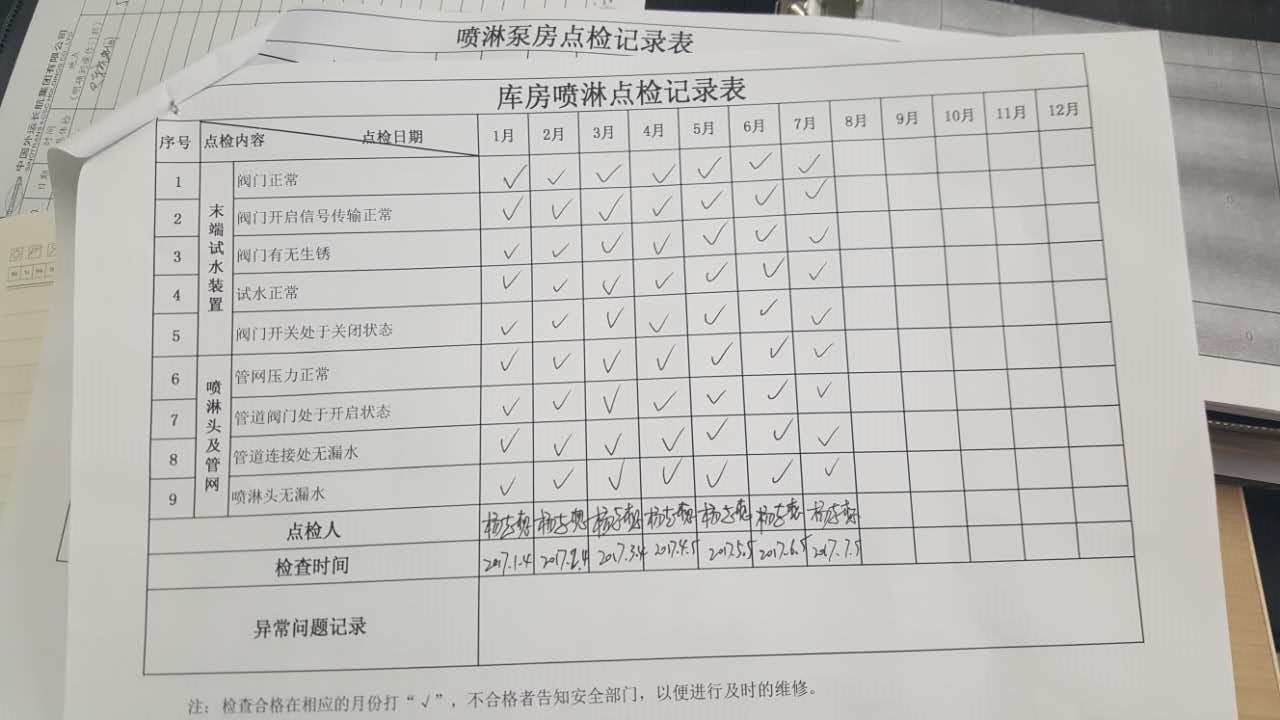 喷淋泵房点检记录表
库房喷淋点检记录表
序号 点检内容 点检日期 1月 2月 3月 4月 5月 6月 7月 8月 9月 10月 11月 12月
末端试水装置
1 阀门正常 ✓ ✓ ✓ ✓ ✓ ✓ ✓
2 阀门开启信号传输正常 ✓ ✓ ✓ ✓ ✓ ✓ ✓
3 阀门有无生锈 ✓ ✓ ✓ ✓ ✓ ✓ ✓
4 试水正常 ✓ ✓ ✓ ✓ ✓ ✓ ✓
5 阀门开关处于关闭状态 ✓ ✓ ✓ ✓ ✓ ✓ ✓
喷淋头及管网
6 管网压力正常 ✓ ✓ ✓ ✓ ✓ ✓ ✓
7 管道阀门处于开启状态 ✓ ✓ ✓ ✓ ✓ ✓ ✓
8 管道连接处无漏水 ✓ ✓ ✓ ✓ ✓ ✓ ✓
9 喷淋头无漏水 ✓ ✓ ✓ ✓ ✓ ✓ ✓
点检人
检查时间 2017.1.4 2017.2.4 2017.3.4 2017.4.5 2017.5.5 2017.6.5 2017.7.5
异常问题记录
注：检查合格在相应的月份打“√”，不合格者告知安全部门，以便进行及时的维修。
中国外运长航集团有限公司